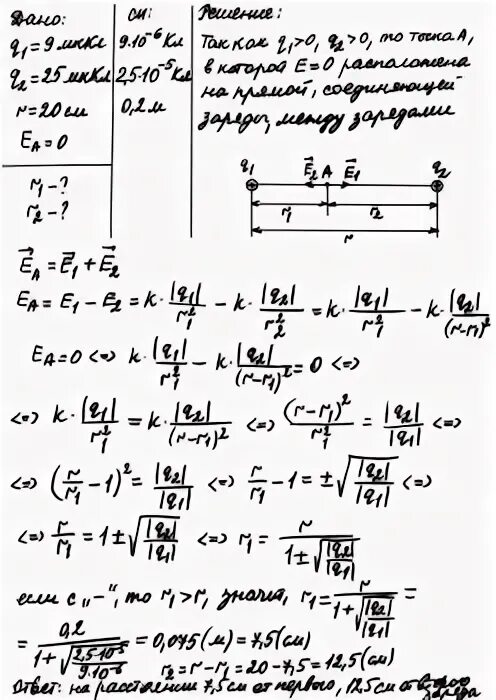 Дано:
q₁ = 9 мкКл
q₂ = 25 мкКл
r = 20 см
E_A = 0
r₁ - ?
r₂ - ?
СИ:
9·10⁻⁶ Кл
2,5·10⁻⁵ Кл
0,2 м
Решение:
Так как q₁>0, q₂>0, то точка A,
в которой E=0 расположена
на прямой, соединяющей
заряды, между зарядами
q₁ E⃗₂ A E⃗₁ q₂
r₁ r₂
r
E⃗_A = E⃗₁ + E⃗₂
E_A = E₁ - E₂ = k·|q₁|/r₁² - k·|q₂|/r₂² = k·|q₁|/r₁² - k·|q₂|/(r-r₁)²
E_A = 0 <=> k·|q₁|/r₁² - k·|q₂|/(r-r₁)² = 0 <=>
<=> k·|q₁|/r₁² = k·|q₂|/(r-r₁)² <=> (r-r₁)²/r₁² = |q₂|/|q₁| <=>
<=> (r/r₁ - 1)² = |q₂|/|q₁| <=> r/r₁ - 1 = ±√(|q₂|/|q₁|) <=>
<=> r/r₁ = 1 ± √(|q₂|/|q₁|) <=> r₁ = r/(1 ± √(|q₂|/|q₁|))
если с „-", то r₁ > r, значит, r₁ = r/(1 + √(|q₂|/|q₁|)) =
= 0,2/(1 + √(2,5·10⁻⁵/9·10⁻⁶)) = 0,075 (м) = 7,5 (см)
r₂ = r - r₁ = 20 - 7,5 = 12,5 (см)
Ответ: на расстоянии 7,5 см от первого, 12,5 см от второго
заряда